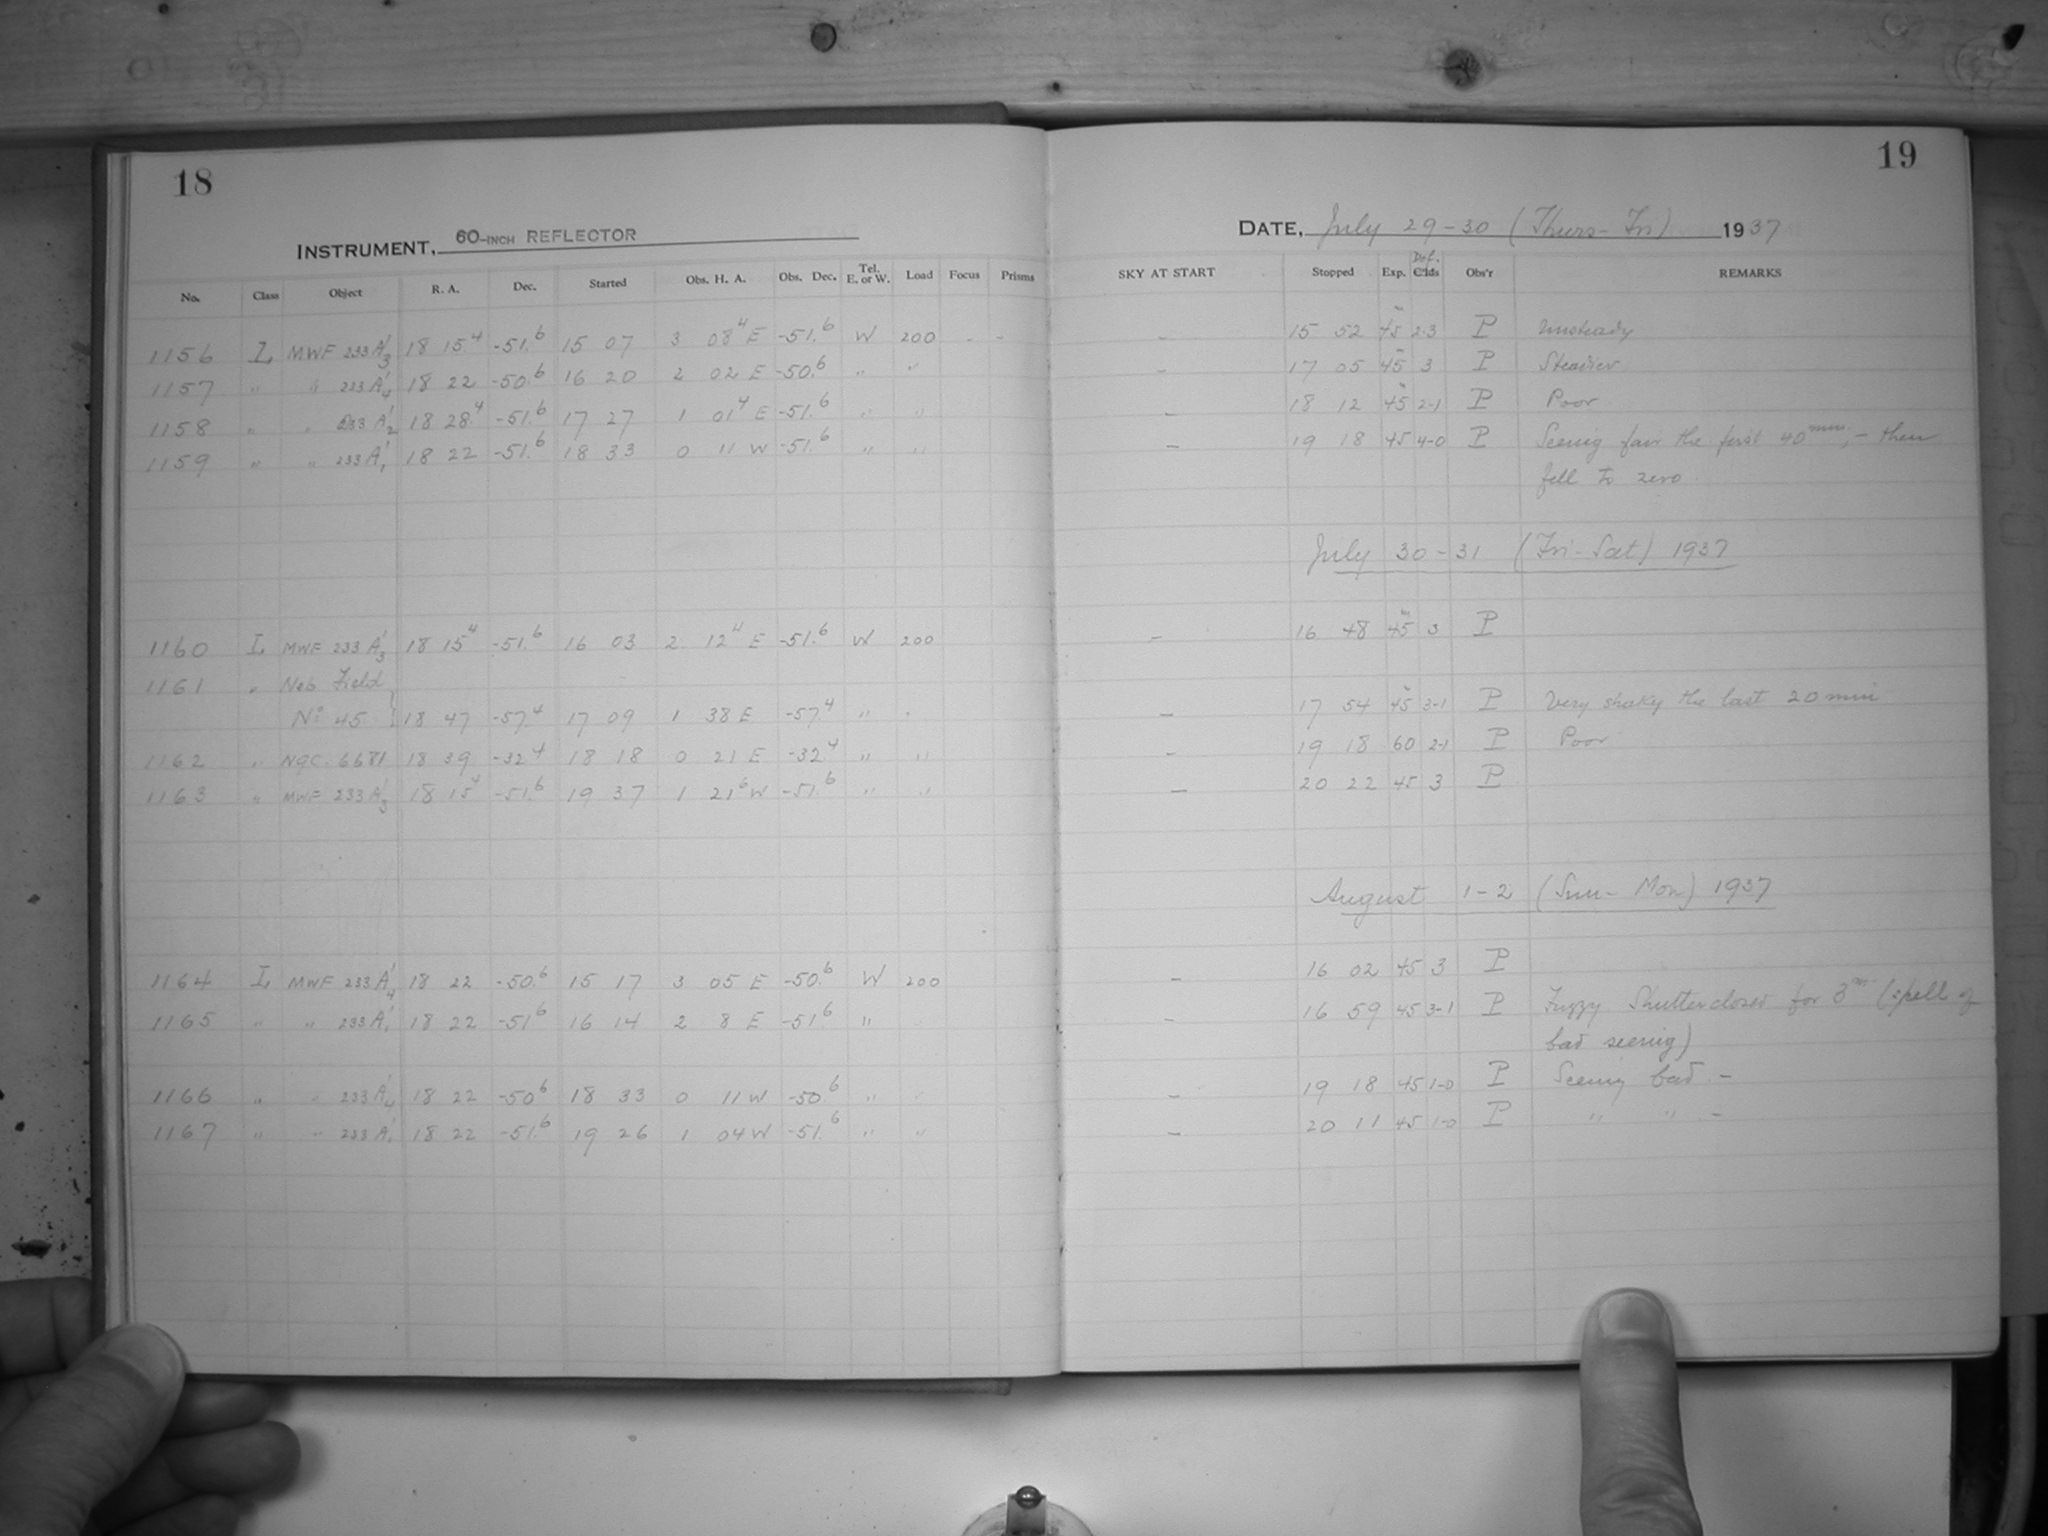 18
INSTRUMENT, 60-INCH REFLECTOR
No. Class Object R. A. Dec. Started Obs. H. A. Obs. Dec. Tel. E. or W. Load Focus Prisms
1156 I, MWF 233 A'3 18 15.4 -51.6 15 07 3 08 4 E -51.6 W 200 - -
1157 " " 233 A'4 18 22 -50.6 16 20 2 02 E -50.6 " "
1158 " " 233 A'2 18 28.4 -51.6 17 27 1 01 4 E -51.6 " "
1159 " " 233 A'1 18 22 -51.6 18 33 0 11 W -51.6 " "
1160 I, MWF 233 A'3 18 15 4 -51.6 16 03 2 12 4 E -51.6 W 200
1161 " Neb Field
No 45 18 47 -57 4 17 09 1 38 E -57 4 " "
1162 " NGC. 6681 18 39 -32 4 18 18 0 21 E -32 4 " "
1163 " MWF 233 A'3 18 15 4 -51.6 19 37 1 21 6 W -51.6 " "
1164 I, MWF 233 A'4 18 22 -50.6 15 17 3 05 E -50.6 W 200
1165 " " 233 A'1 18 22 -51 6 16 14 2 8 E -51 6 "
1166 " " 233 A'4 18 22 -50 6 18 33 0 11 W -50 6 " "
1167 " " 233 A'1 18 22 -51.6 19 26 1 04 W -51.6 " "
19
DATE, July 29-30 (Thurs-Fri) 1937
SKY AT START Stopped Exp. Def. Clds Obs'r REMARKS
- 15 52 45 m 2-3 P Unsteady
- 17 05 45 3 P Steadier
- 18 12 45 2-1 P Poor
- 19 18 45 4-0 P Seeing fair the first 40 min; - then
fell to zero.
July 30-31 (Fri-Sat) 1937
- 16 48 45 m 3 P
- 17 54 45 3-1 P Very shaky the last 20 min
- 19 18 60 2-1 P Poor
- 20 22 45 3 P
August 1-2 (Sun-Mon) 1937
- 16 02 45 3 P
- 16 59 45 3-1 P Fuzzy Shutter closed for 3 m (spell of
bad seeing)
- 19 18 45 1-0 P Seeing bad. -
- 20 11 45 1-0 P " " -